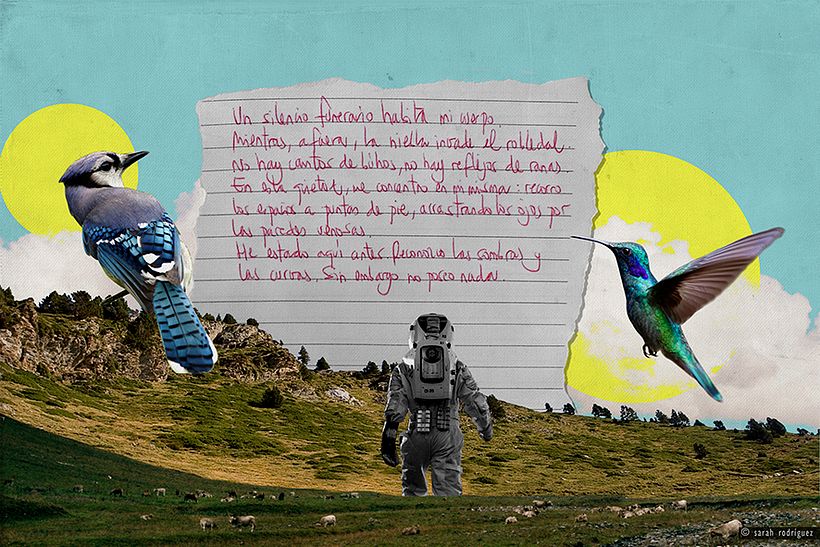 Un silencio funerario habita mi cuerpo
mientras, afuera, la niebla invade el robledal.
No hay cantos de búhos, no hay reflejos de ranas.
En esta quietud, me concentro en mi misma: recorro
los espacios a puntas de pie, arrastrando los ojos por
las paredes venosas.
He estado aquí antes. Reconozco las sombras y
las curvas. Sin embargo no poseo nada.
© sarah rodriguez